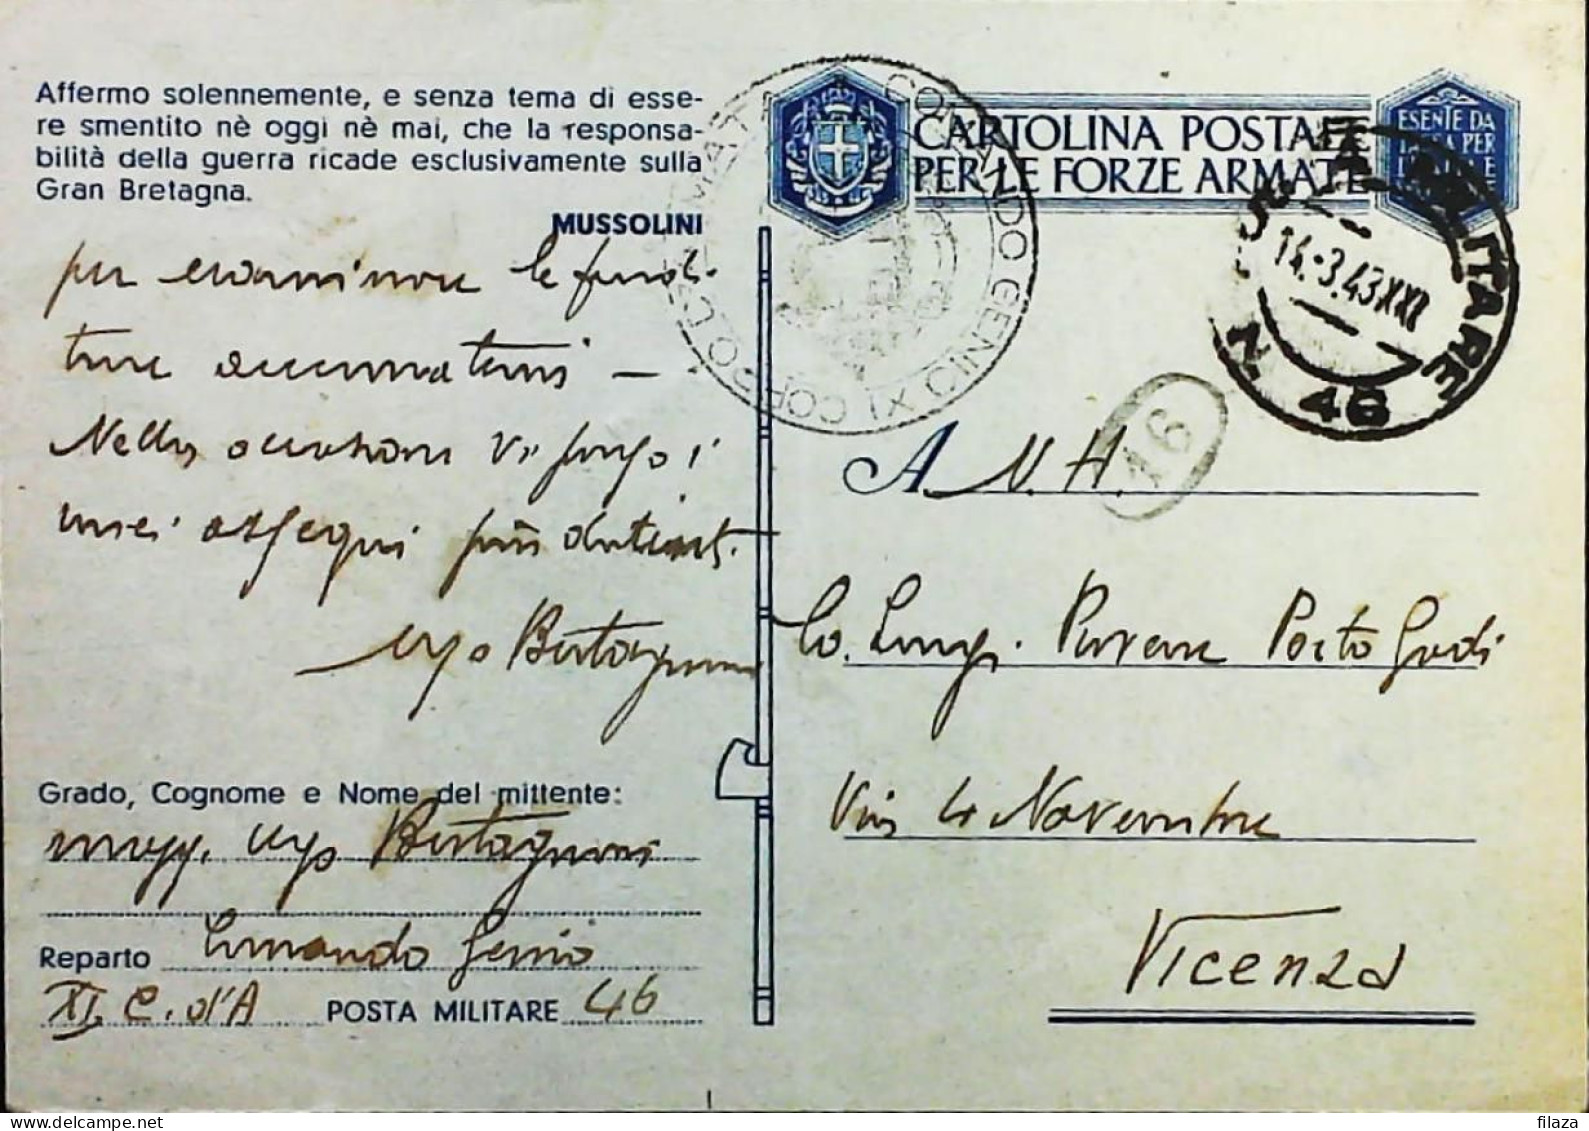 Affermo solennemente, e senza tema di esse-
re smentito nè oggi nè mai, che la responsa-
bilità della guerra ricade esclusivamente sulla
Gran Bretagna.
MUSSOLINI
per esaminare le
ture
Nella occasione Vi porgo i
miei ossequi più distint.
Ugo Bertagnoni
Grado, Cognome e Nome del mittente:
magg. Ugo Bertagnoni
Reparto Comando Genio
XI C. d'A POSTA MILITARE 46
COMANDO GENIO XI CORPO D'ARMATA
CARTOLINA POSTALE
PER LE FORZE ARMATE
ESENTE DA
TASSA PER
POSTA MILITARE
14.-3.43 XXI
N. 46
16
A N. H.
Co. Luigi Porto Godi
Via 4 Novembre
Vicenza
filaza